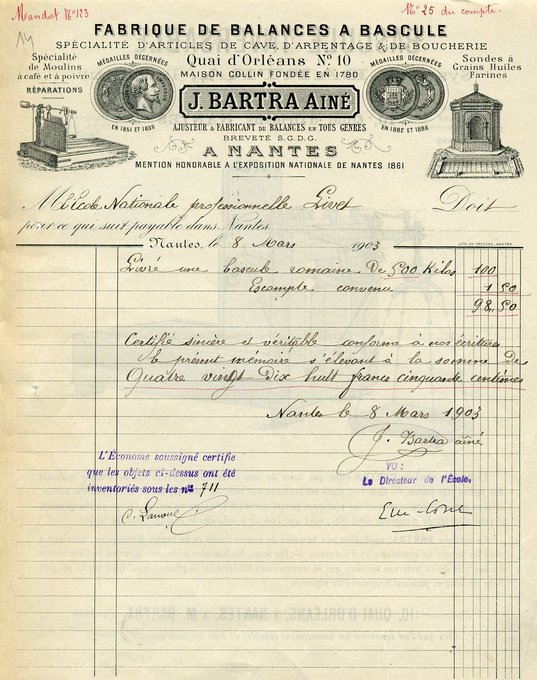 Mandat N° 123
N° 25 du compte.
FABRIQUE DE BALANCES A BASCULE
SPÉCIALITÉ D'ARTICLES DE CAVE, D'ARPENTAGE & DE BOUCHERIE
Spécialité
de Moulins
à café et à poivre
RÉPARATIONS
MÉDAILLES DÉCERNÉES
EN 1851 ET 1859
Quai d'Orléans N° 10
MAISON COLLIN FONDÉE EN 1780
J. BARTRA AINÉ
AJUSTEUR & FABRICANT DE BALANCES EN TOUS GENRES
BREVETÉ S.G.D.G.
A NANTES
MENTION HONORABLE A L'EXPOSITION NATIONALE DE NANTES 1861
MÉDAILLES DÉCERNÉES
EN 1882 ET 1886
Sondes à
Grains Huiles
Farines
M l'École Nationale professionnelle Livet Doit
pour ce qui suit payable dans Nantes
Nantes, le 8 Mars 1903
Livré une bascule romaine De 500 Kilos 100
Escompte convenu 1 50
98.50
Certifié sincère et véritable conforme à nos écritures
le présent mémoire s'élevant à la somme de
Quatre vingt Dix huit francs cinquante centimes
Nantes le 8 Mars 1903
J. Bartra aîné
L'Économe soussigné certifie
que les objets ci-dessus ont été
inventoriés sous les nos 711
VU :
Le Directeur de l'École,